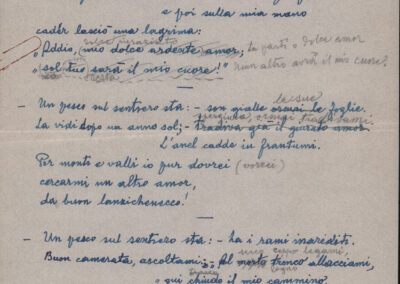 e poi sulla mia mano
cadér lasciò una lagrima:
"Addio, mio dolce ardente amor; tu parti o dolce amor
"sol tuo sarà il mio cuore!" nun altro avrà il mio cuore!
resta
le sue
— Un pesco sul sentiero sta: – son gialle ormai le foglie.
spergiura, ormai tradivami.
La vidi dopo un anno sol; – tradiva già il giurato amor.
L'anel cadde in frantumi.
Per monti e valli io pur dovrei (vorrei)
cercarmi un altro amor,
da buon lanzichenecco!
— Un pesco sul sentiero sta: – ha i rami inariditi.
ceppo legami,
Buon camerata, ascoltami: al morto tronco allacciami,
legno
qui chiudo il mio cammino.